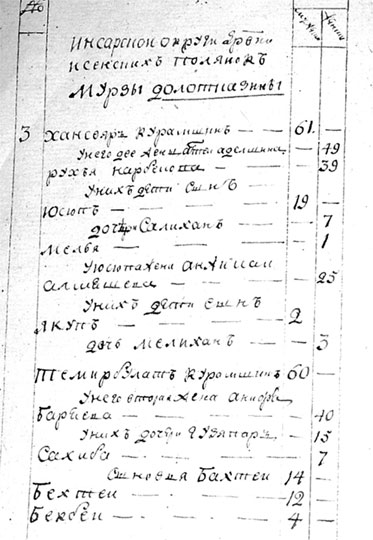 Инсарской округи Дрвни
исенских полянокъ
Мурзы долотказины
3 Хансеяръ Курамшинъ — — 61. —
У него две жены Фатма аделшина — — 49
Рухъя Нарбекова — — — 39
У нихъ дети сынъ — — —
Юсюпъ — — — 19 —
дочь Салиханъ — — 7
Мелья — — — 1
У Юсюпа жена
— — — 25
У нихъ дети сынъ
Якупъ — — — 2 —
дочь Мелиханъ — — 3
Темирбулатъ Курамшинъ 60 —
У него вторая жена
Бараева — — — 40
У нихъ дочери Гузяпаръ — 15
Сахиба — — — 7
Сыновья Бахтеи 14 —
Бектеи — — — 12 —
Бекбеи — — — 4 —